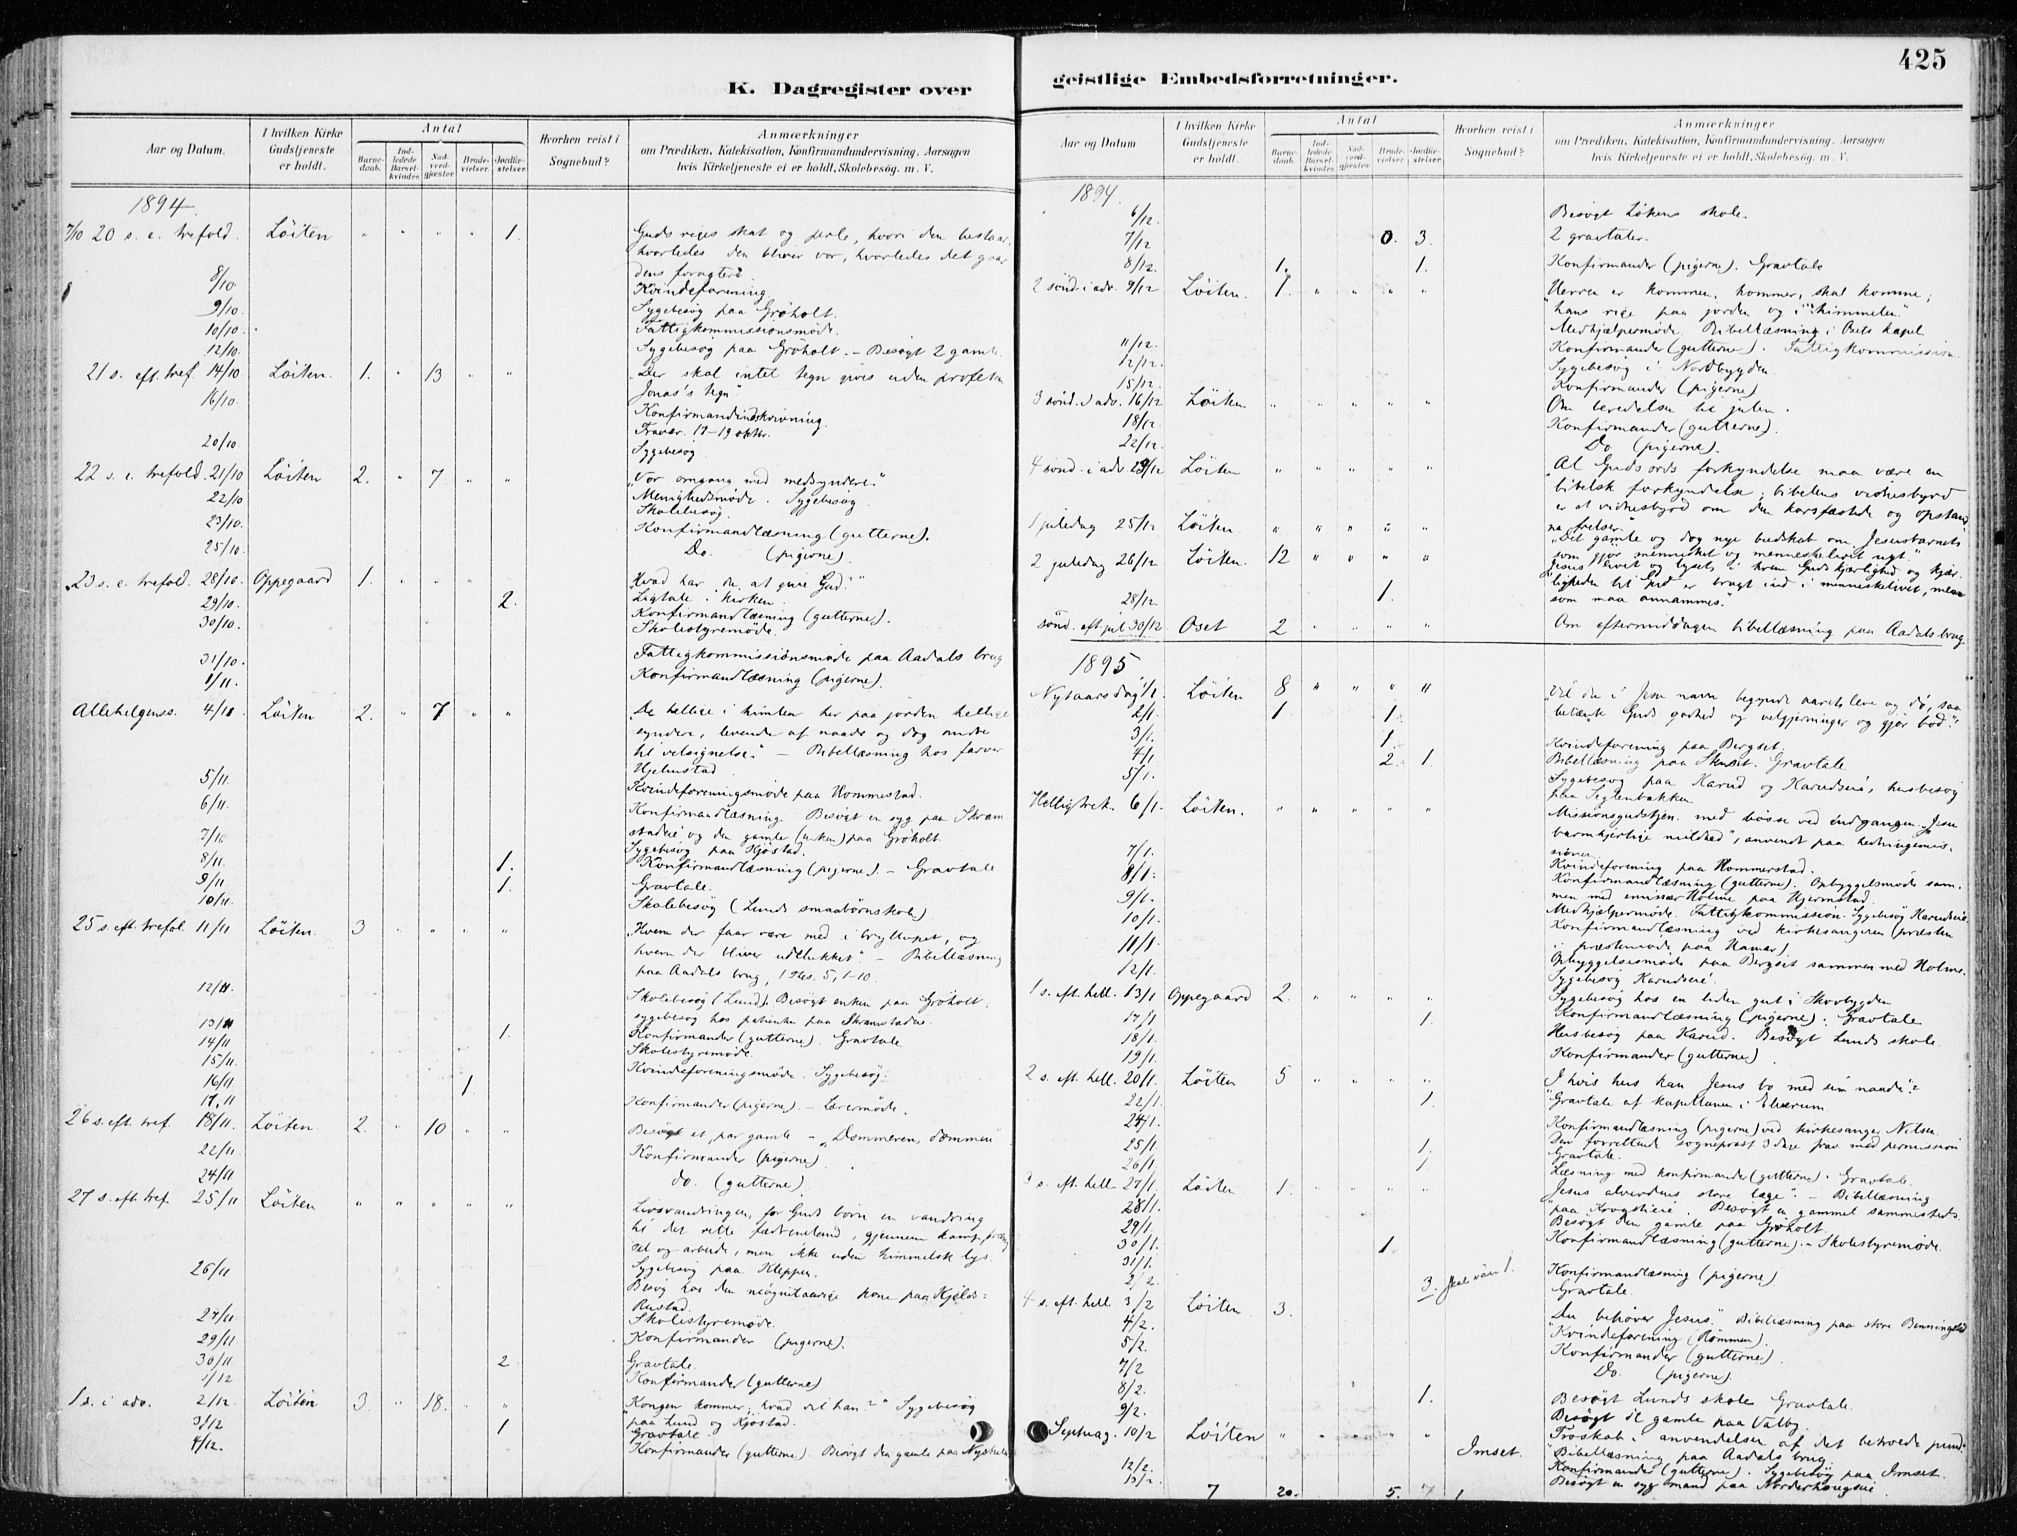 425
K. Dagregister over
geistlige Embedsforretninger.
Aar og Datum.
I hvilken Kirke Gudstjeneste er holdt.
Antal
Barnedaab.
Indledede Barselkvinder.
Nadverdgjæster.
Brudevielser.
Jordfæstelser.
Hvorhen reist i Sognebud?
Anmærkninger
om Prædiken, Katekisation, Konfirmandundervisning, Aarsagen
hvis Kirketjeneste ei er holdt, Skolebesøg. m. V.
1894.
7/10 20 s. e. trefold. Löiten " " " " 1. Guds riges skat og perle, hvori den bestaar,
hvorledes den bliver vor, hvorledes det gaar
dens foragter?
8/10 Kvindeforening
9/10. Sygebesøg paa Gröholt.
10/10. Fattigkommissionsmöde.
12/10. Sygebesøg paa Gröholt. - Besögt 2 gamle.
21 s. eft. tref. 14/10 Löiten. 1. " 13 " " "Der skal intet tegn gives uden profeten
Jonas's tegn"
16/10. Konfirmandindskrivning.
Fravær. 17-19 oktbr.
20/10. Sygebesøg
22 s. e. trefold. 21/10 Löiten 2. " 7 " " "Vor omgang med medsyndere."
22/10 Menighedsmöde. Sygebesøg
23/10. Skolebesøg.
Konfirmandlæsning (gutterne).
25/10. Do. (pigerne)
23 s. e. trefold. 28/10. Oppegaard 1. " " " " "Hvad har du at give Gud?"
29/10. 2. Ligtale i kirken.
30/10. Konfirmandlæsning (gutterne).
Skolestyremöde.
31/10. Fattigkommissionsmöde paa Aadals brug
1/11. Konfirmandlæsning (pigerne).
Allehelgenss. 4/11 Löiten 2. " 7 " " "De hellige i himlen her paa jorden hellige
syndere, levende af naade og dog andre
til velsignelse." - Bibellæsning hos farver
Hjelmstad.
5/11 Kvindeforeningsmöde paa Hommestad.
6/11. Konfirmandlæsning Besögt en syg paa Skram
stadeie og den gamle (enken) paa Gröholt.
7/11. Sygebesøg paa Kjöstad.
8/11. 1. Konfirmandlæsning (pigerne). - Gravtale
9/11 1. Gravtale.
10/11. Skolebesøg (Lunds smaabörnskole)
25 s. eft. trefol. 11/11 Löiten. 3 " " " " "Hvem der faar være med i bryllupet, og
hvem der bliver udelukket". - Bibellæsning
paa Aadals brug, 1 Thes. 5, 1-10.
12/11. Skolebesøg (Lund). Besögt enken paa Gröholt.
sygebesøg hos patienten paa Skramstadeie.
13/11 1. Konfirmander (gutterne). Gravtale.
14/11 Skolestyremöde.
15/11. Kvindeforeningsmöde. Sygebesøg.
16/11 1.
17.11 Konfirmander (pigerne). - Lærermöde.
26 s. eft. tref. 18/11. Löiten 2. " 10 " " Besögt et par gamle - "Dommeren, dommen"
22/11. Konfirmander (pigerne).
24/11 do. (gutterne)
27 s. eft. tref. 25/11 Löiten " " " " " Livsvandringen, for Guds börn en vandring
til det rette fædreneland, gjennem kamp,
sel og arbeide, men ikke uden himmelsk lys.
26/11 Sygebesøg paa Kleppen.
Besøg hos den kone paa Kjelds=
Rustad.
27/11 Skolestyremöde.
29/11 Konfirmander (pigerne).
30/11 2. Gravtale.
1/12 Konfirmander (gutterne)
1 s. i adv. 2/12. Löiten 3. " 18. " " "Kongen kommer; hvad vil han?" Sygebesøg
3/12 1 paa Lund og Kjöstad.
Gravtale.
4/12. Konfirmander (gutterne). Besögt den gamle paa
Aar og Datum
I hvilken Kirke Gudstjeneste er holdt.
Antal
Barnedaab.
Indledede Barselkvinder.
Nadverdgjæster.
Brudevielser.
Jordfæstelser.
Hvorhen reist i Sognebud?
Anmærkninger
om Prædiken, Katekisation, Konfirmandundervisning, Aarsagen
hvis Kirketjeneste ei er holdt, Skolebesøg. m. V.
1894.
6/12. Besögt Lökens skole.
7/12 0. 3. 2 gravtaler.
8/12. 1. 1. Konfirmander (pigerne). Gravtale
2 sönd. i adv. 9/12 Löiten. 7. " " " " "Herren er kommen, kommer, skal komme;
hans rige paa jorden og i himmelen."
Medhjælpermöde. Bibellæsning i Osets kapel
11/12. Konfirmander (gutterne). Fattigkommission.
12/12. Sygebesøg i Nordbygden
15/12. Konfirmander (pigerne)
3 sönd. i adv. 16/12 Löiten " " " " " Om beredelse til julen.
18/12. Konfirmander (gutterne).
22/12. Do (pigerne).
4 sönd. i adv. 23/12 Löiten " " " " " "At Guds ords forkyndelse maa være en
bibelsk forkyndelse; bibelens vidnesbyrd
er et vidnesbyrd om den korsfæstede og opstand
ne frelser."
1 juledag 25/12 Löiten. " " " " " "Det gamle og dog nye budskab om Jesusbarnet,
som gjör mennesket og menneskelivet nyt"
2 juledag 26/12 Löiten. 12 " " " " "Jesus livet og lyset, i hvem Guds kjærlighed og kjær-
ligheden til Gud er bragt ind i menneskelivet, men
28/12. 1. som maa annammes."
sönd. eft. jul 30/12 Oset 2 " " " " Om eftermiddagen bibellæsning paa Aadalsbrug.
1895
Nytaarsdag 1/1 Löiten 8 " " " " "Vil du i Jesu navn begynde aaret, leve og dö, saa
2/1. 1. 1. betænk Guds godhed og velgjerninger og gjör bod".
3/1. 1. Kvindeforening paa Bergset.
4/1 2. 1. Bibellæsning paa Gravtale
5/1. Sygebesøg paa Karud og Karudseie, husbesøg
paa Teglenbakken.
Helligtrek. 6/1. Löiten. " " " " " Missionsgudstjen. med bösse ved indgangen. "Jesu
barmhjertige mildhed", anvendt paa hedningemis-
sionen
7/1. Kvindeforening paa Hommerstad.
8/1. Konfirmandlæsning (gutterne). Opbyggelsesmöde sam-
9/1. men med emissær Holme paa Hjermstad.
10/1. Medhjælpermöde. Fattigkommission. Sygebesøg Karudseie.
11/1. Konfirmandlæsning ved kirkesangeren (præsten
i præstemöde paa Hamar)
12/1. Opbyggelsesmöde paa Bergset sammen med Holme.
Sygebesøg Karudseie.
1 s. eft. hell. 13/1 Oppegaard 2. " " " " Sygebesøg hos en liden gut i Skovbygden
17/1 1. Konfirmandlæsning (pigerne). Gravtale
18/1. Husbesøg paa Karud. Besögt Lunds skole.
19/1. Konfirmander (gutterne)
2 s. eft. hell. 20/1. Löiten 5 " " " " "I hvis hus kan Jesus bo med sin naade"?
22/1. 1. Gravtale af kapellanen i Elverum.
24/1. Konfirmandlæsning (pigerne) ved kirkesanger Nilsen.
25/1 1. Den forrettende sogneprest 3 dage frav. med permission
26/1 1. Gravtale.
Læsning med konfirmander (gutterne). Gravtale.
3 s. eft. hell. 27/1. Löiten 1. " " " " "Jesus alverdens store læge". - Bibellæsning
28/1. paa Krogstieie. Besögt en gammel sammesteds.
29/1. Besögt den gamle paa Gröholt.
30/1. 1. Konfirmandlæsning (gutterne). - Skolestyremöde.
31/1. Konfirmandlæsning (pigerne)
2/2. 3. skal være 1. Gravtale.
4 s. eft. hell. 3/2 Löiten 3. "Du behöver Jesus". Bibellæsning paa store Benningstad
4/2. Kvindeforening (Römmen).
5/2. Konfirmander (gutterne).
7/2 Do. (pigerne).
8/2. 1. Besögt Lunds skole Gravtale.
9/2. Besögt to gamle paa Valby.
Septuag. 10/2 Löiten " " " " " "Troskab i anvendelsen af det betroede pund"
Imset. Bibellæsning paa Aadals brug.
12/2. Konfirmander (gutterne). Sygebesøg paa Imset.
13/2 Besögt en syg mand paa Norderhougseie.
7 20. 5. 7 1